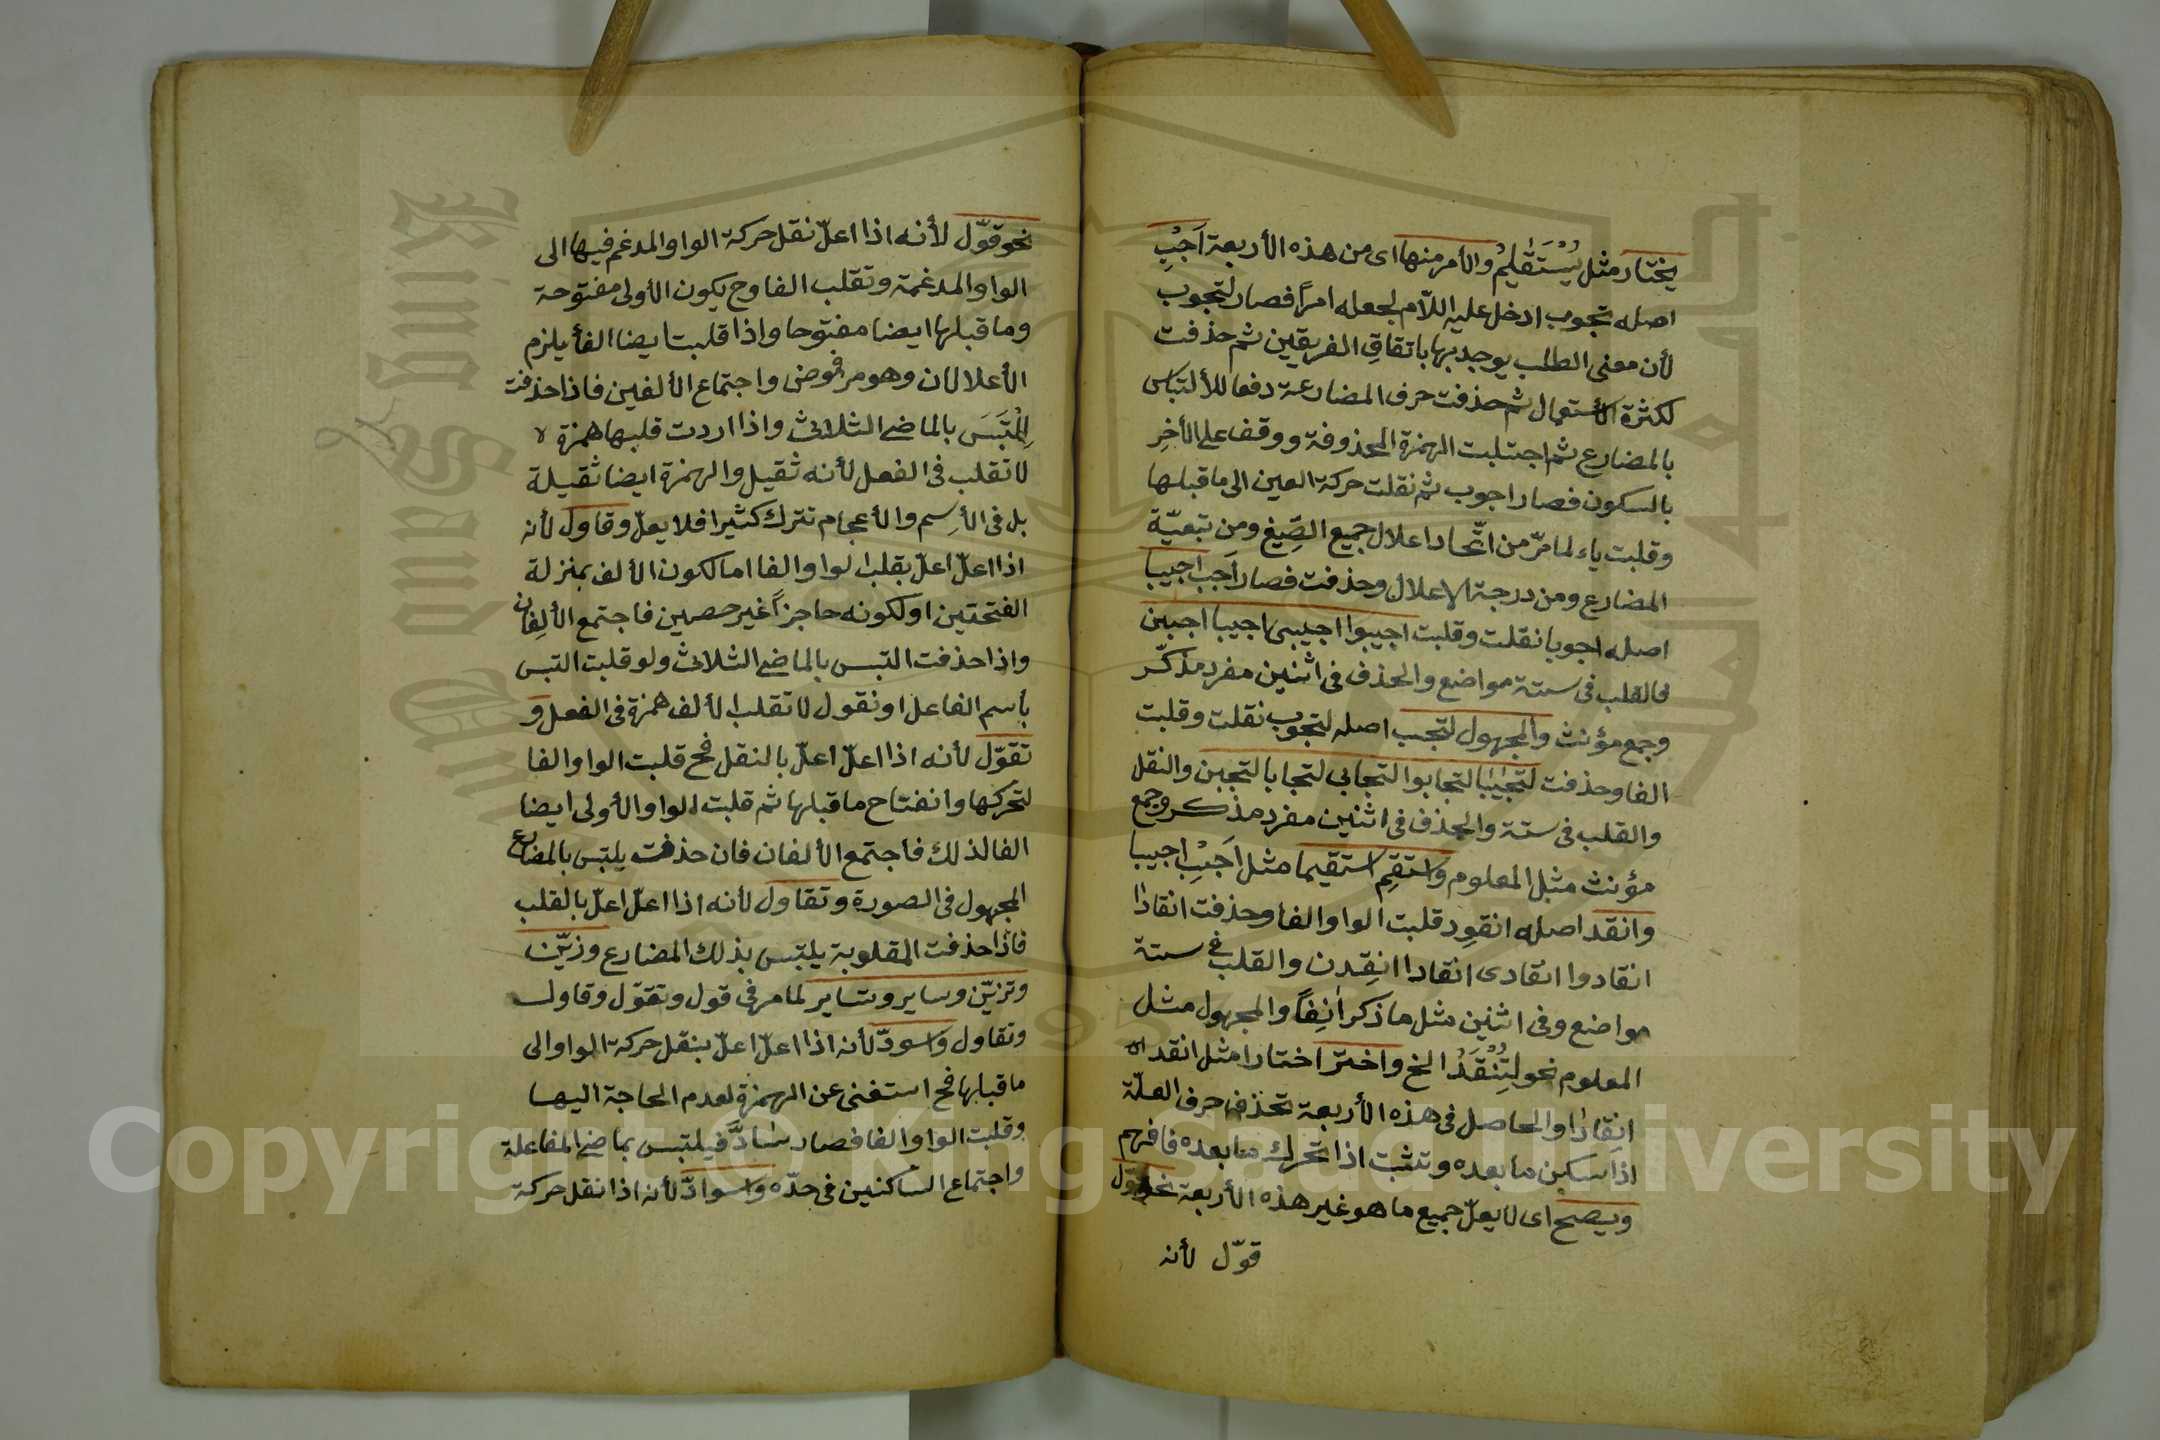 يختار مثل يُسْتَقٰيمُ والأمر منها اى من هذه الأربعة اَجِبْ
اصله تجوب ادخل عليه اللّام لجعله امراً فصار لتجوب
لأن معنى الطلب يوجد بها باتفاقِ الفريقين ثم حذفت
لكثرة الأستعمال ثم حذفت حرف المضارعة دفعا للألتباس
بالمضارع ثم اجتلبت الهمزة المحذوفة ووقف على الأخِرِ
بالسكون فصار اجوب ثم نقلت حركة العين الى ما قبلها
وقلبت ياء لما مرّ من اتّحاد اعلال جميع الصِّيغ ومن تبعيّة
المضارع ومن درجة الاعلال وحذفت فصار اَجب اجيبا
اصله اجوبا نقلت وقلبت اجيبوا اجيبى اجيبا اجبن
فالقلب فى ستة مواضع والحذف فى اثنين مفرد مذكّر
وجمع مؤنث والمجهول لتجب اصله لتجوب نقلت وقلبت
الفا وحذفت لتجابا لتجابوا لتجابى لتجابا لتجبن والنقل
والقلب فى ستة والحذف فى اثنين مفرد مذكر وجمع
مؤنث مثل المعلوم واستقِم استقيما مثل اَجِبْ اجيبا
وانقد اصله انقوِد قلبت الواو الفا وحذفت انقادا
انقادوا انقادى انقادا انقِدن والقلب فى ستة
مواضع وفى اثنين مثل ما ذكر اٰنِفاً والمجهول مثل
المعلوم نحو لِتُنْقَدُ الخ واختر اختارا مثل انقد
انقِادا والحاصل فى هذه الأربعة تحذف حرف العلّة
اذا سكن ما بعده وتثبت اذا تحرك ما بعده فافهم
ويصح اى لا يعلّ جميع ما هو غير هذه الأربعة نحو قوّل
قوّل لأنه
نحو قوّل لأنه اذا اعلّ نقل حركة الواو المدغم فيها الى
الواو المدغمة وتقلب الفا وح يكون الأولى مفتوحة
وما قبلها ايضا مفتوحا واذا قلبت ايضا الفا يلزم
الأعلالان وهو مرفوض واجتماع الألفين فاذا حذفت
اِلْتَبَسَ بالماضى الثلاثى واذا اردت قلبها همزة
لا تقلب فى الفعل لأنه ثقيل والهمزة ايضا ثقيلة
بل فى الأسِم والأعجام تترك كثيرا فلا يعلّ وقاول لأنه
اذا اعلّ اعلّ بقلب الواو الفا اما لكون الألف بمنزلة
الفتحتين او لكونه حاجزاً غير حصين فاجتمع الألِفان
واذا حذفت التبس بالماضى الثلاثى ولو قلبت التبس
بأسم الفاعل او نقول لا تقلب الألف همزة فى الفعل و
تقوّل لأنه اذا اعلّ اعلّ بالنقل فح قلبت الواو الفا
لتحركها وانفتاح ما قبلها ثم قلبت الواو الأولى ايضا
الفا لذلك فأجتمع الألفان فان حذفت يلتبس بالمضارع
المجهول فى الصورة وتقاول لأنه اذا اعلّ اعلّ بالقلب
فاذا حذفت المقلوبة يلتبس بذلك المضارع وزيّن
وتزيّن وساير وتساير لما مر فى قول وتقوّل وقاول
وتقاول واسودّ لأنه اذا اعلّ اعلّ بنقل حركة الواو الى
ما قبلها فح استغنى عن الهمزة لعدم الحاجة اليها
وقلبت الواو الفا فصار سٰادَّ فيلتبس بماضى المفاعلة
واجتماع الساكنين فى حدّه واسوادّ لأنه اذا نقل حركة
Copyright © King Saud University